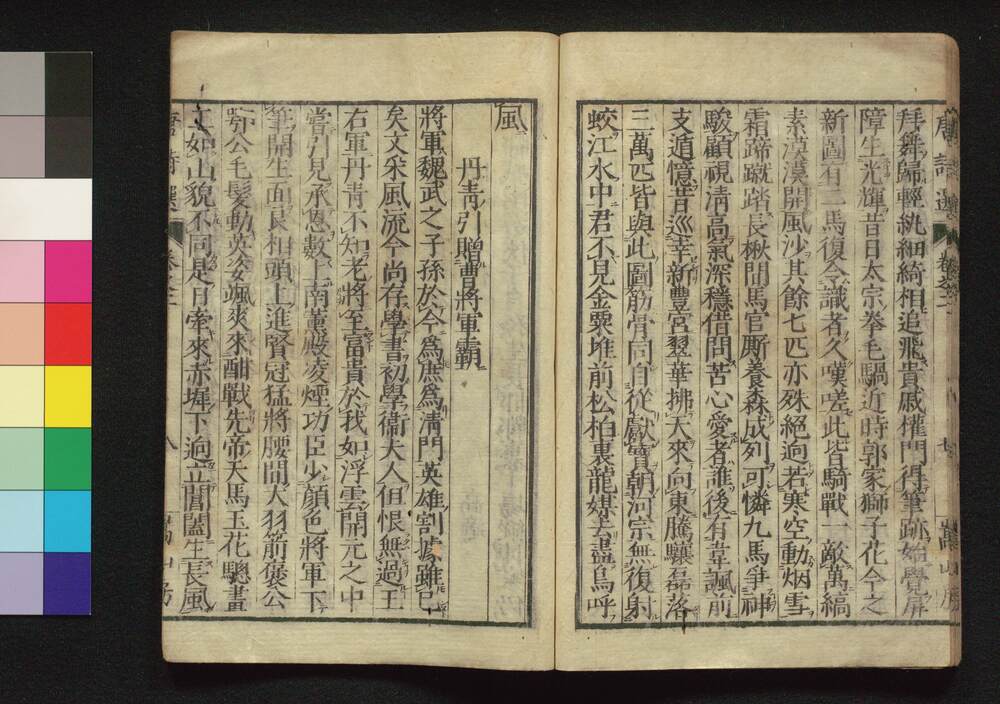 拜舞歸輕紈細綺相追飛貴戚權門得筆跡始覺屏
障生光輝昔日太宗拳毛騧近時郭家獅子花今之
新圖有二馬復令識者久嘆嗟此皆騎戰一敵萬縞
素漠漠開風沙其餘七匹亦殊絕迥若寒空動烟雪
霜蹄蹴踏長楸間馬官厮養森成列可憐九馬爭神
駿顧視清高氣深穩借問苦心愛者誰後有韋諷前
支遁憶昔巡幸新豐宮翠華拂天來向東騰驤磊落
三萬匹皆與此圖筋骨同自從獻寶朝河宗無復射
蛟江水中君不見金粟堆前松柏裏龍媒去盡鳥呼
風
丹青引贈曹將軍霸
將軍魏武之子孫於今為庶為淸門英雄割據雖已
矣文采風流今尚存學書初學衞夫人但恨無過王
右軍丹青不知老將至富貴於我如浮雲開元之中
嘗引見承恩數上南薰殿凌煙功臣少顏色將軍下
筆開生面良相頭上進賢冠猛將腰間大羽箭褒公
鄂公毛髮動英姿颯爽來酣戰先帝天馬玉花驄畫
工如山貌不同是日牽來赤墀下迥立閶闔生長風
唐詩選 卷之二 八 嵩山房